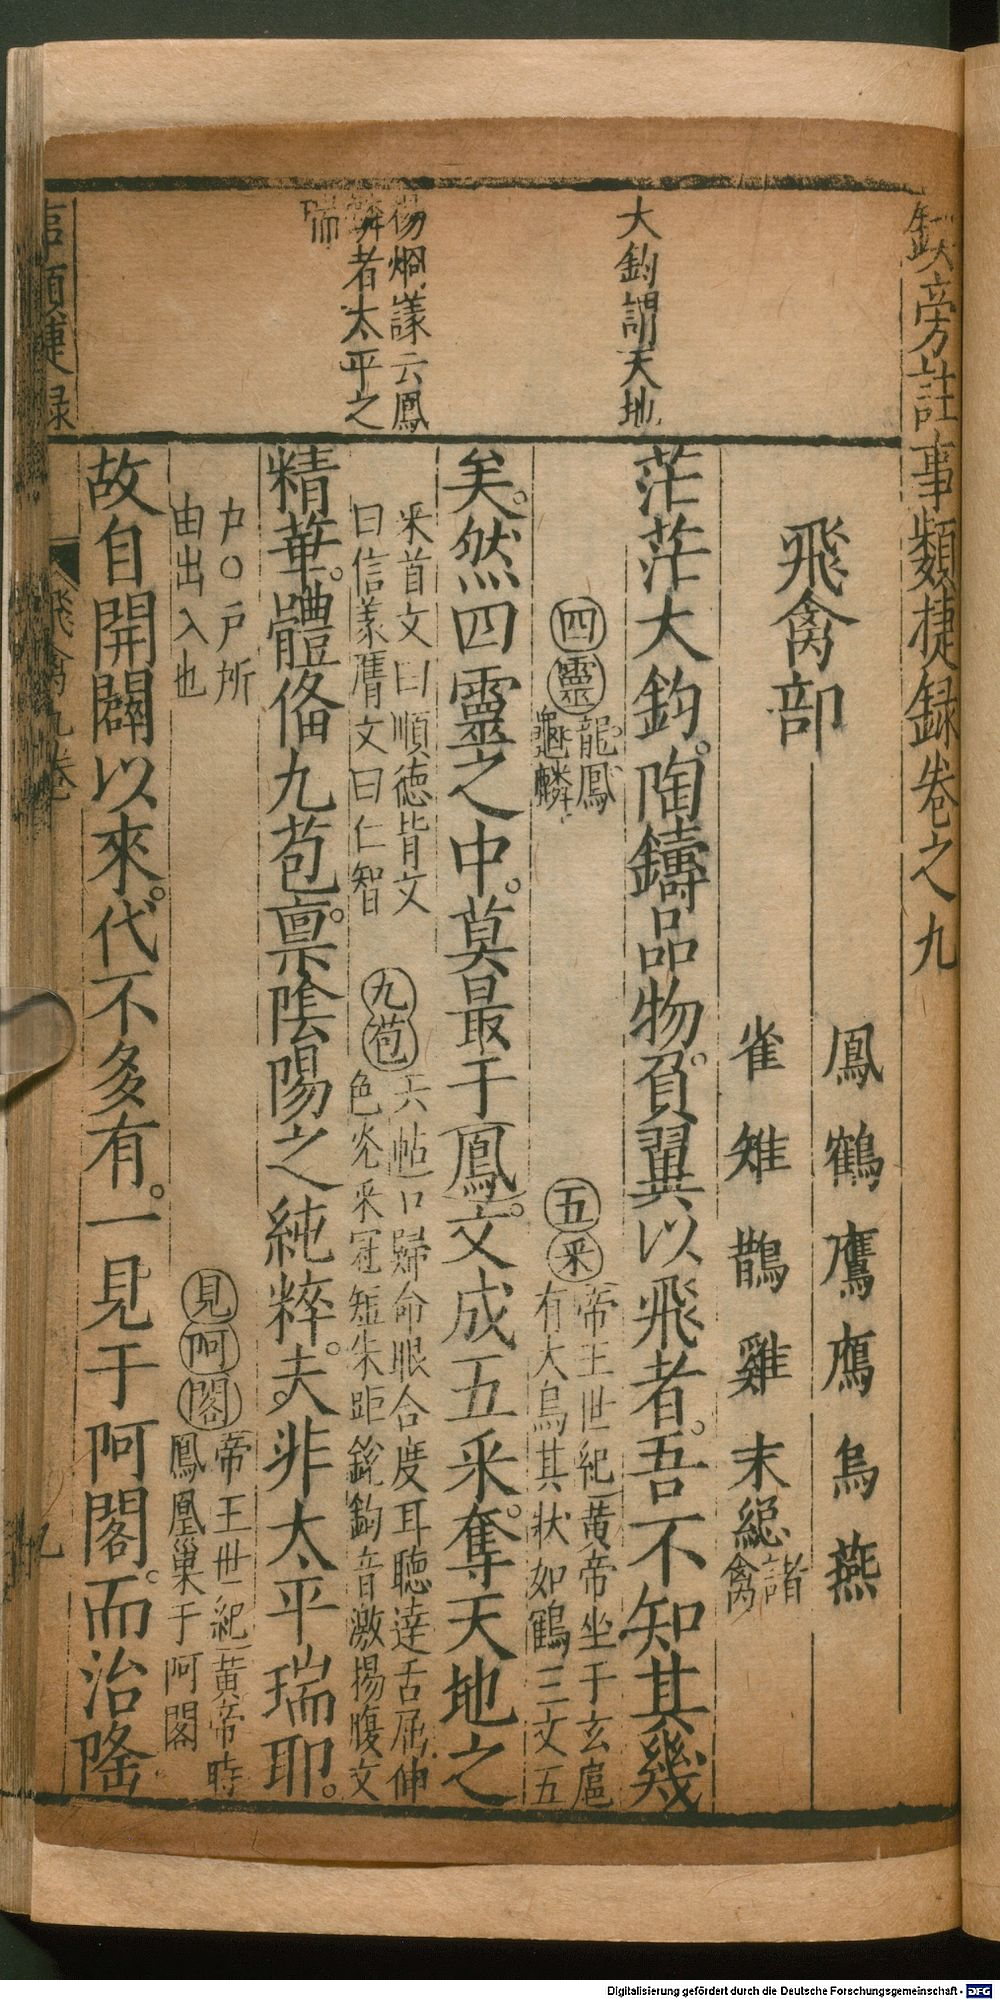 鈌旁註事類捷録卷之九
大鈞謂天地
楊烱議云鳳
麟者太平之
瑞
飛禽部
鳳鶴鷹鴈烏燕
雀雉鵲雞末緫諸
禽
茫茫大鈞。陶鑄品物。負翼以飛者。吾不知其幾
四靈龍鳳
龜麟
五采帝王世紀黃帝坐于玄扈
有大鳥其狀如鶴三文五
矣。然四靈之中。莫最于鳳。文成五采。奪天地之
采首文曰順德背文
曰信義膺文曰仁智
九苞六帖口歸命眼合度耳聴達舌屈伸
色光采冠短朱距銳鈎音激揚腹文
精華。體俻九苞。禀陰陽之純粹。夫非太平瑞耶。
户○戸所
由出入也
見阿閣帝王世紀黃帝時
鳳凰巢于阿閣
故自開闢以來。代不多有。一見于阿閣。而治隆
事類捷録
飛禽九卷
Digitalisierung gefördert durch die Deutsche Forschungsgemeinschaft - DFG